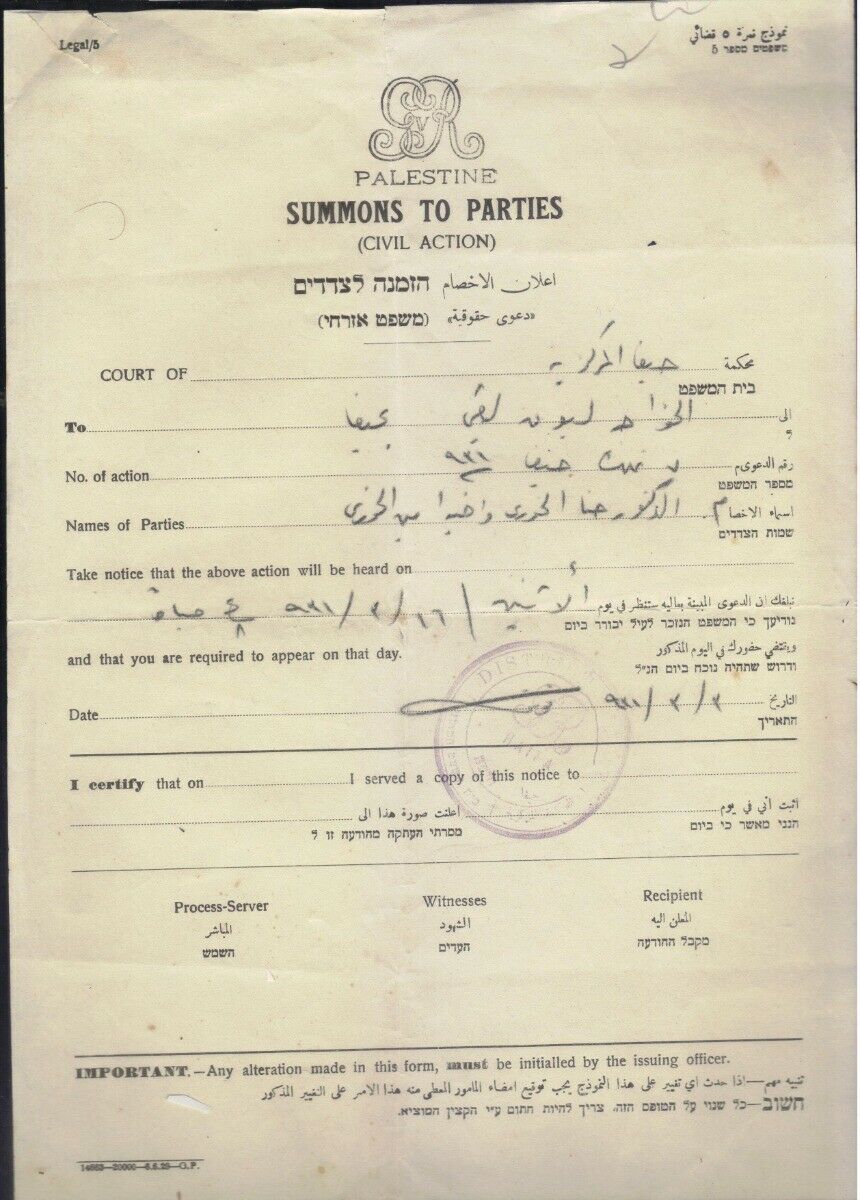 Legal/5
نموذج نمرة ٥ قضائي
משפטים מספר 5
GRV
PALESTINE
SUMMONS TO PARTIES
(CIVIL ACTION)
اعلان الاخصام הזמנה לצדדים
«دعوى حقوقية» (משפט אזרחי)
COURT OF حيفا المركزية محكمة
בית המשפט
To الخواجه ليون بحيفا الى
No. of action حيفا ٩٣١ رقم الدعوى
מספר המשפט
Names of Parties الدكتور حنا الخوري امين الخوري اسماء الاخصام
שמות הצדדים
Take notice that the above action will be heard on
نبلغك ان الدعوى المبينة بعاليه ستنظر في يوم الأثنين ١٦/٣/٩٣١
נודיעך כי המשפט הנזכר לעיל יבורר ביום
and that you are required to appear on that day.
ويقتضي حضورك في اليوم المذكور
ודרוש שתהיה נוכח ביום הנ"ל
Date ٣/٣/٩٣١ التاريخ
התאריך
DISTRICT
HAIFA
I certify that on I served a copy of this notice to
اثبت اني في يوم اعلنت صورة هذا الى
הנני מאשר כי ביום מסרתי העתקה מהודעה זו ל
Process-Server Witnesses Recipient
المباشر الشهود المعلن اليه
השמש העדים מקבל ההודעה
IMPORTANT.—Any alteration made in this form, must be initialled by the issuing officer.
تنبيه مهم—اذا حدث اي تغيير على هذا النموذج يجب توقيع امضاء المامور المعطى منه هذا الامر على التغيير المذكور
חשוב—כל שנוי על הטופס הזה. צריך להיות חתום ע"י הקצין המוציא.
14663—20000—6.6.29—G.P.